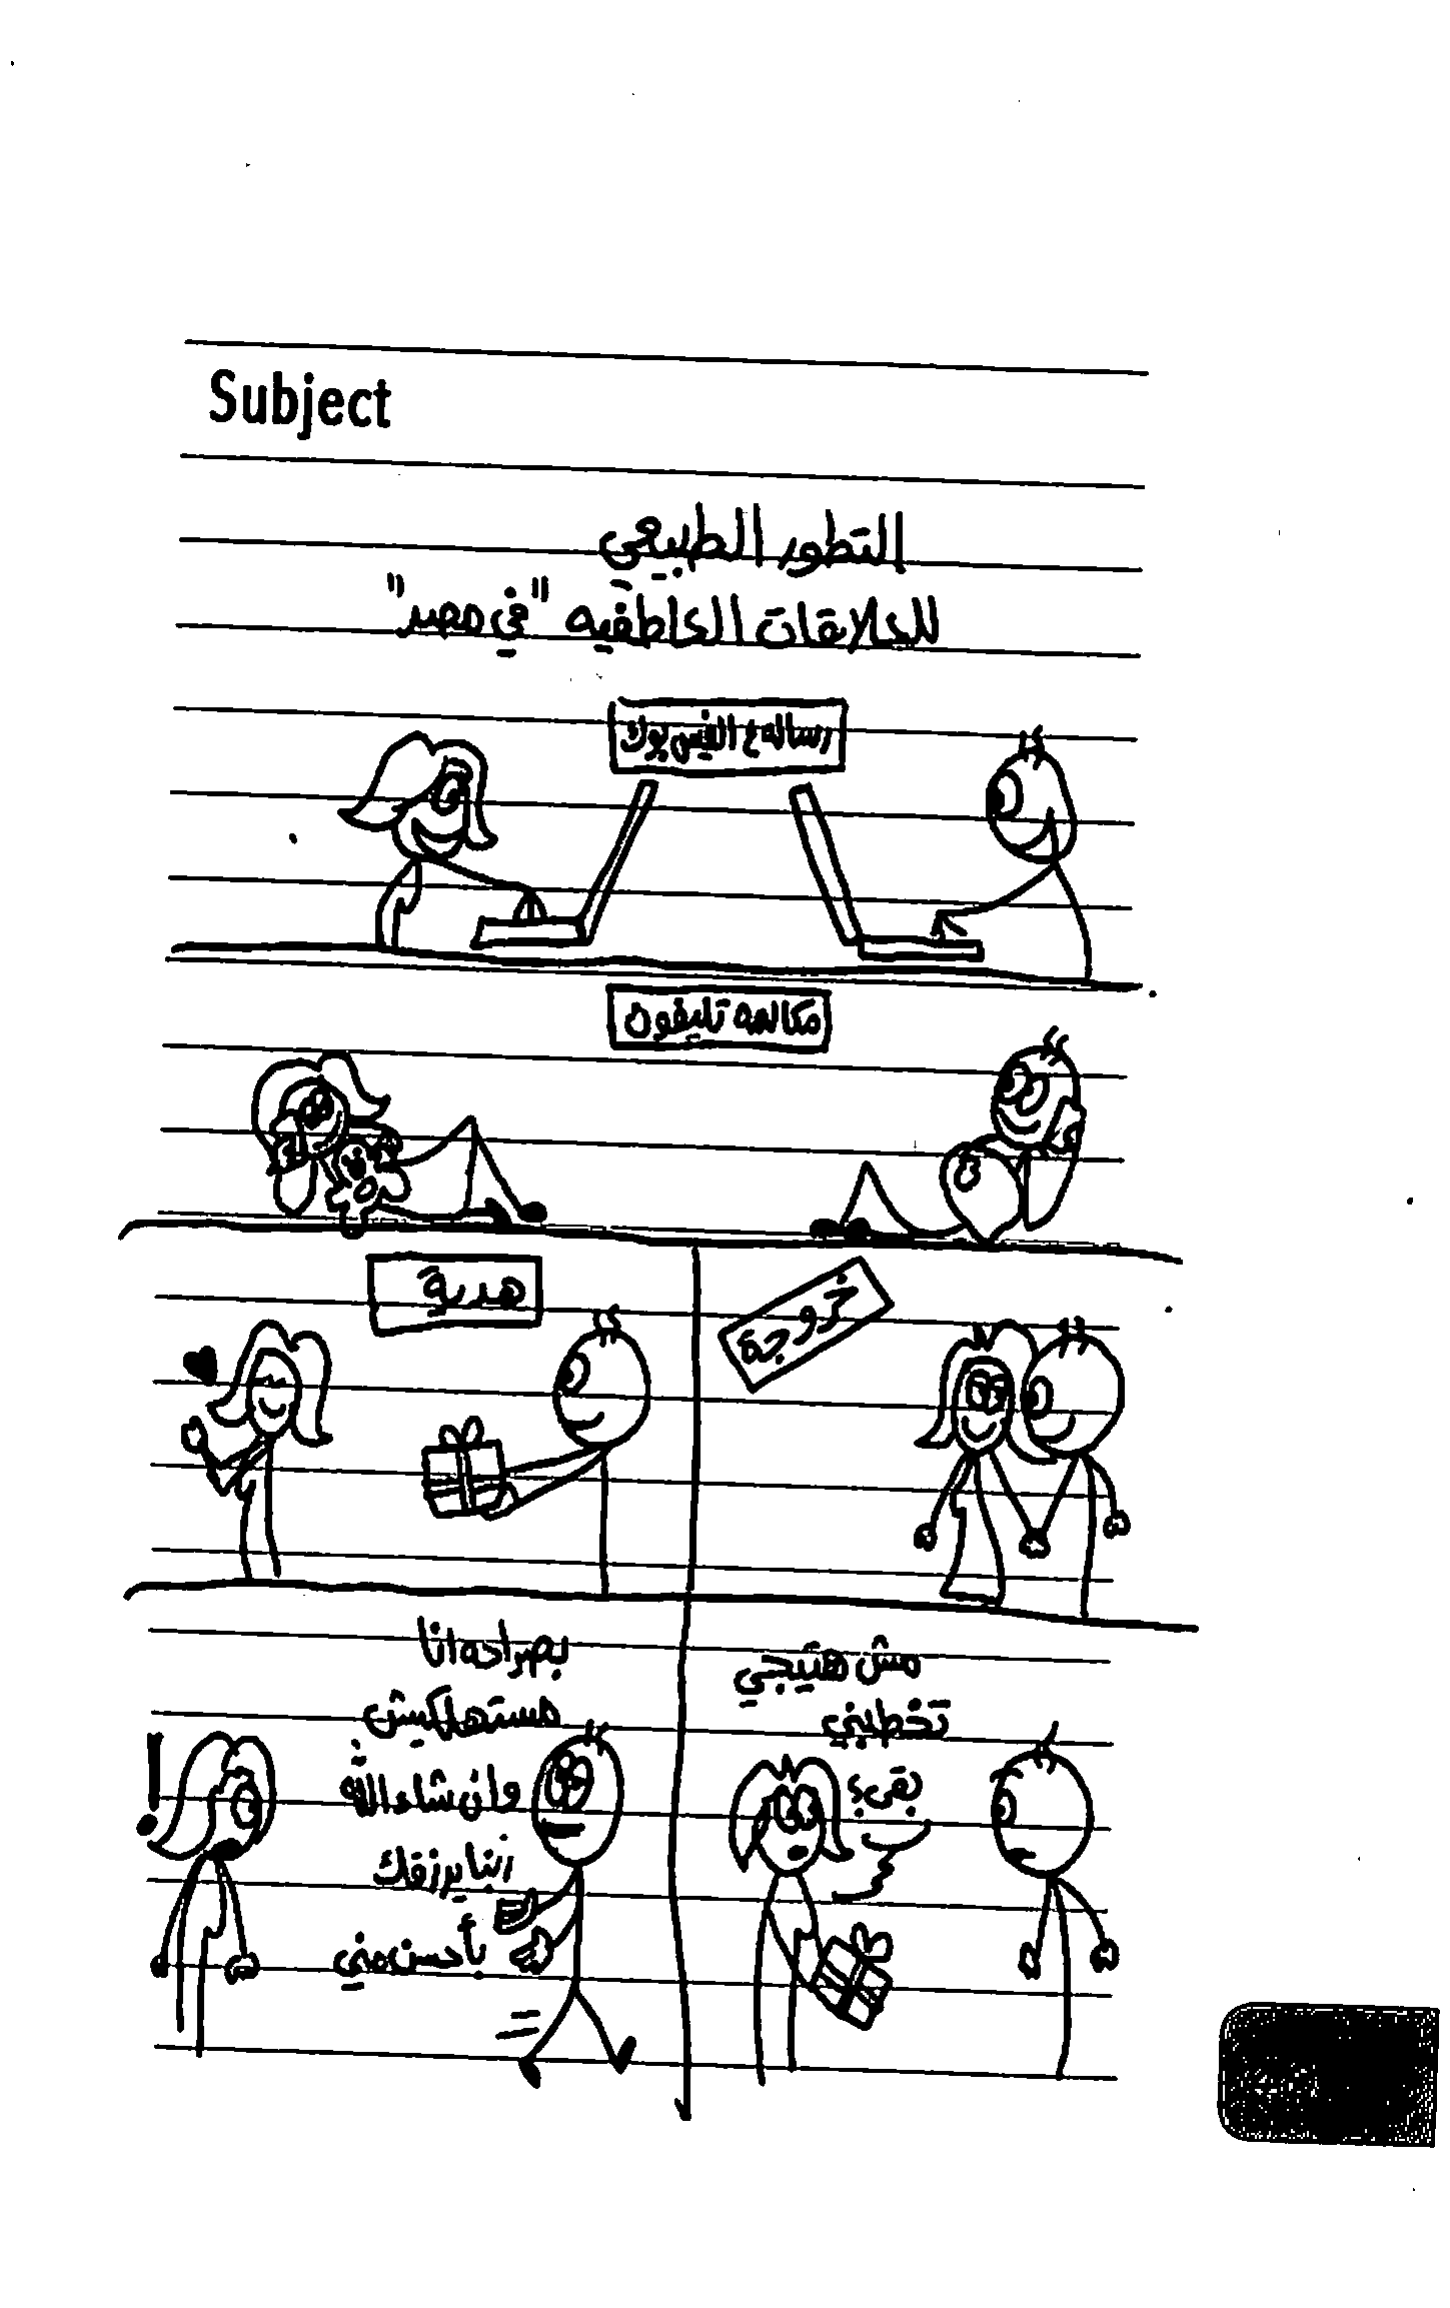 Subject
التطور الطبيعي
للعلاقات العاطفيه "في مصر"
رساله ع الفيس بوك
مكالمه تليفون
خروجة
هدية
مش هتيجي
تخطبني
بقى؟
بصراحه انا
مستهلكيش
وان شاء الله
ربنا يرزقك
بأحسن مني
!